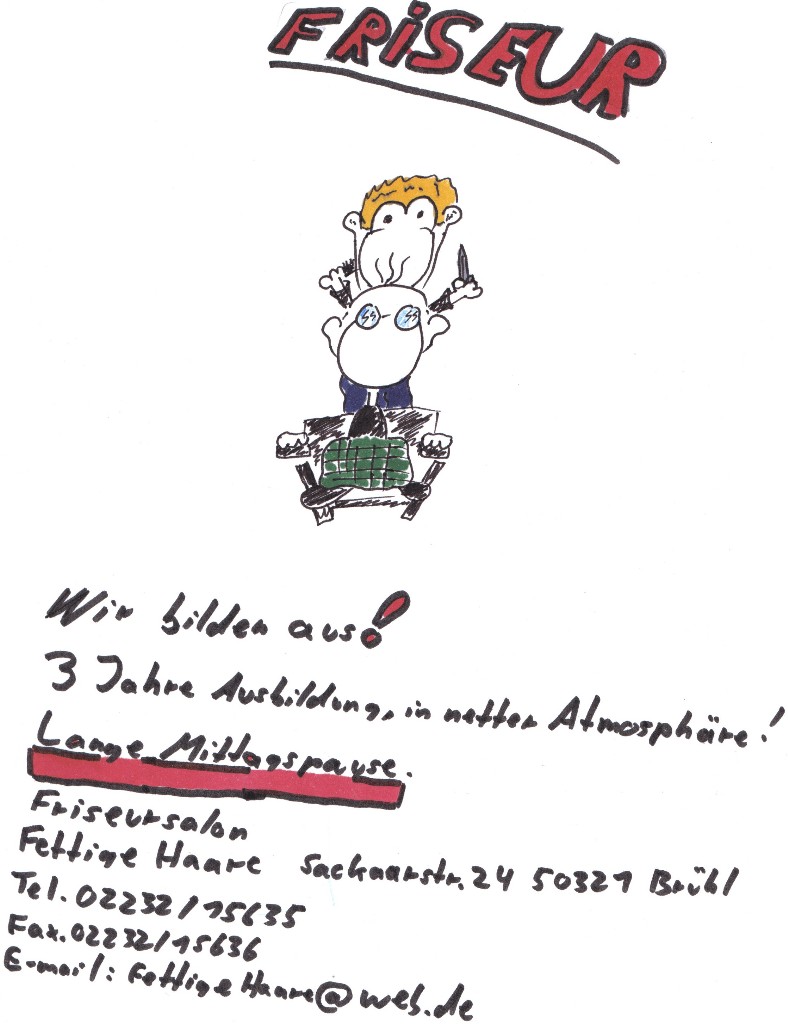 FRiSEUR
Wir bilden aus!
3 Jahre Ausbildung, in netter Atmosphäre!
Lange Mittagspause.
Friseursalon
Fettige Haare Sackaarstr. 24 50321 Brühl
Tel. 02232/15635
Fax. 02232/15636
E-mail: FettigeHaare@web.de